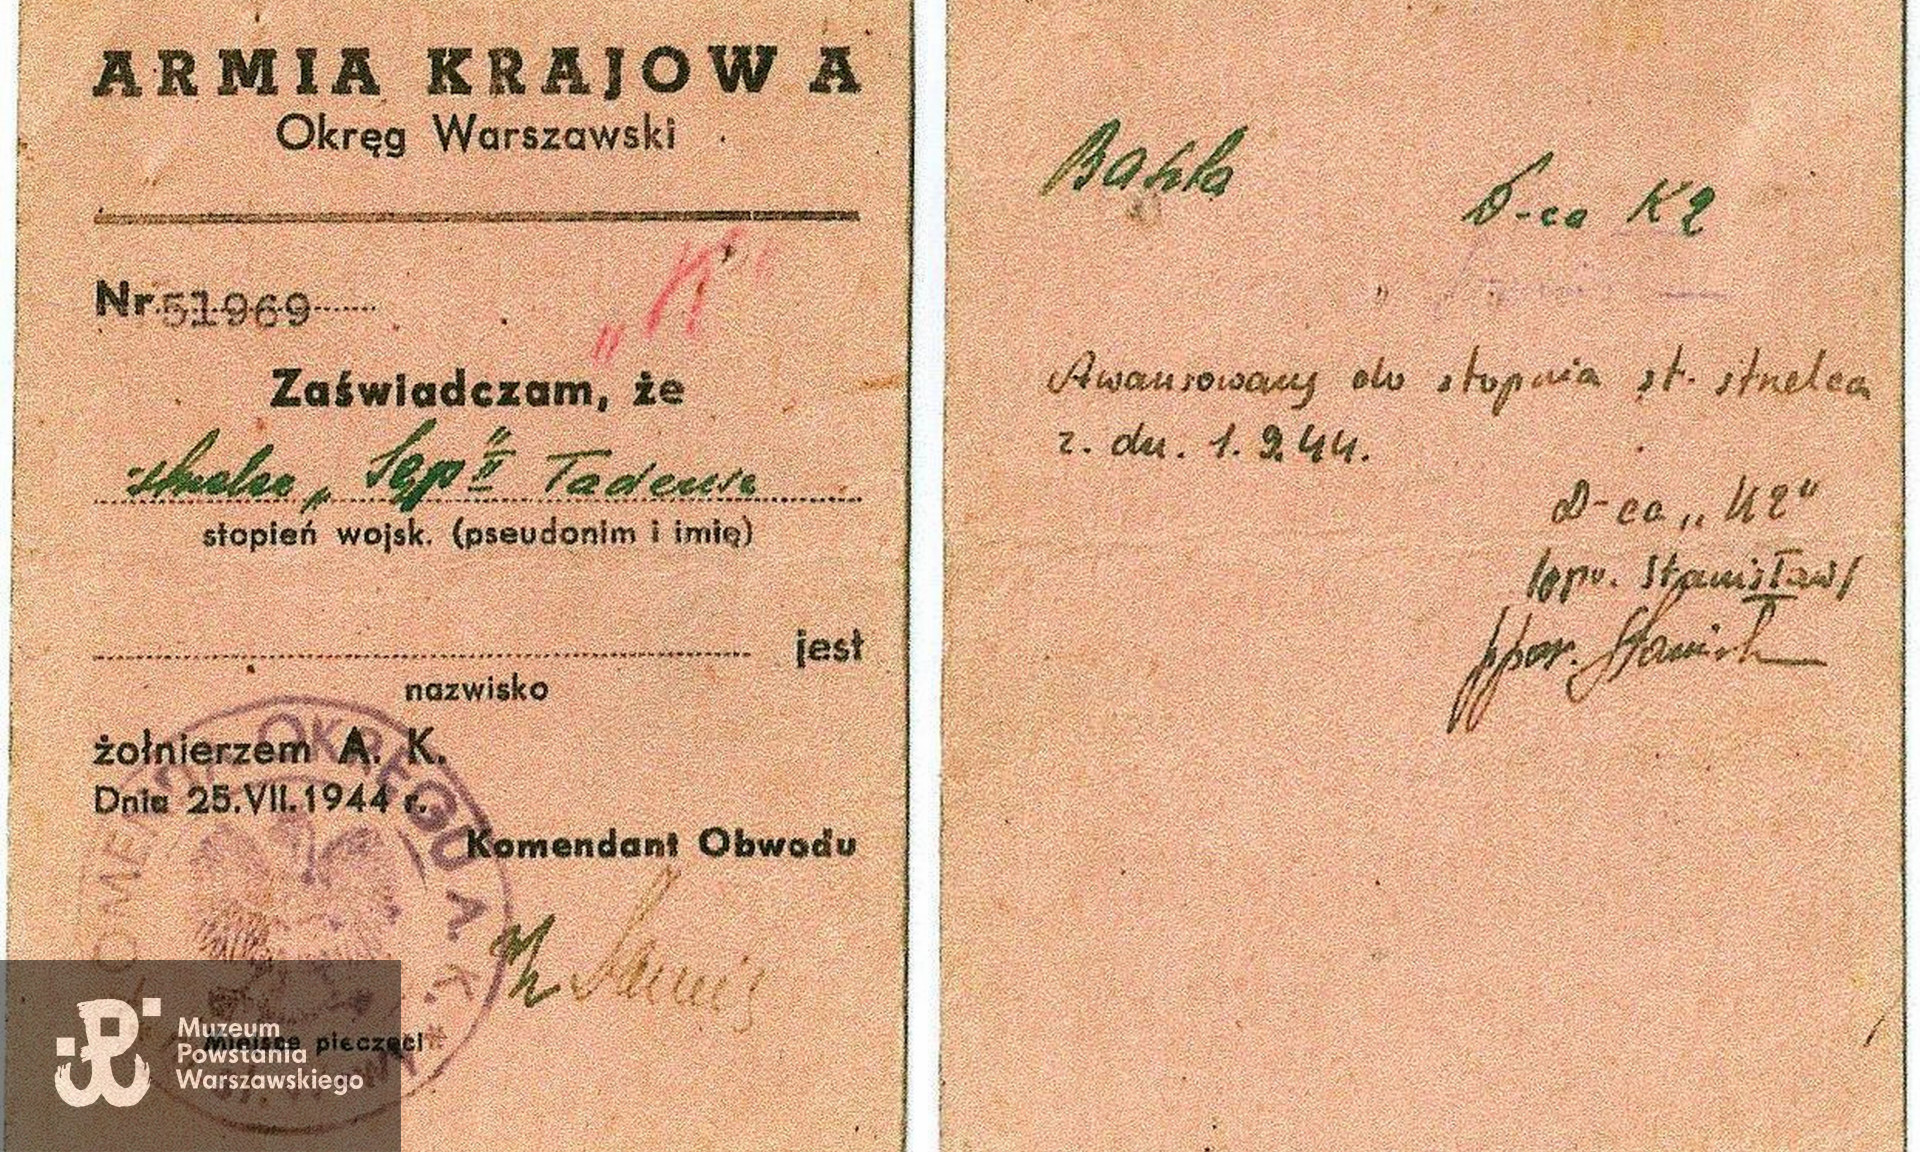 ARMIA KRAJOWA
Okręg Warszawski
Nr. 51969
"K"
Zaświadczam, że
strzelec „Sęp II" Tadeusz
stopień wojsk. (pseudonim i imię)
jest
nazwisko
żołnierzem A. K.
Dnia 25.VII.1944 r.
Komendant Obwodu
KOMENDA OKRĘGU A. K.
Miejsce pieczęci
Muzeum
Powstania
Warszawskiego
Baszta
D-ca K2
Awansowany do stopnia st. strzelca
z. dn. 1.9.44.
D-ca „K2"
ppor. Stanisław
ppor.